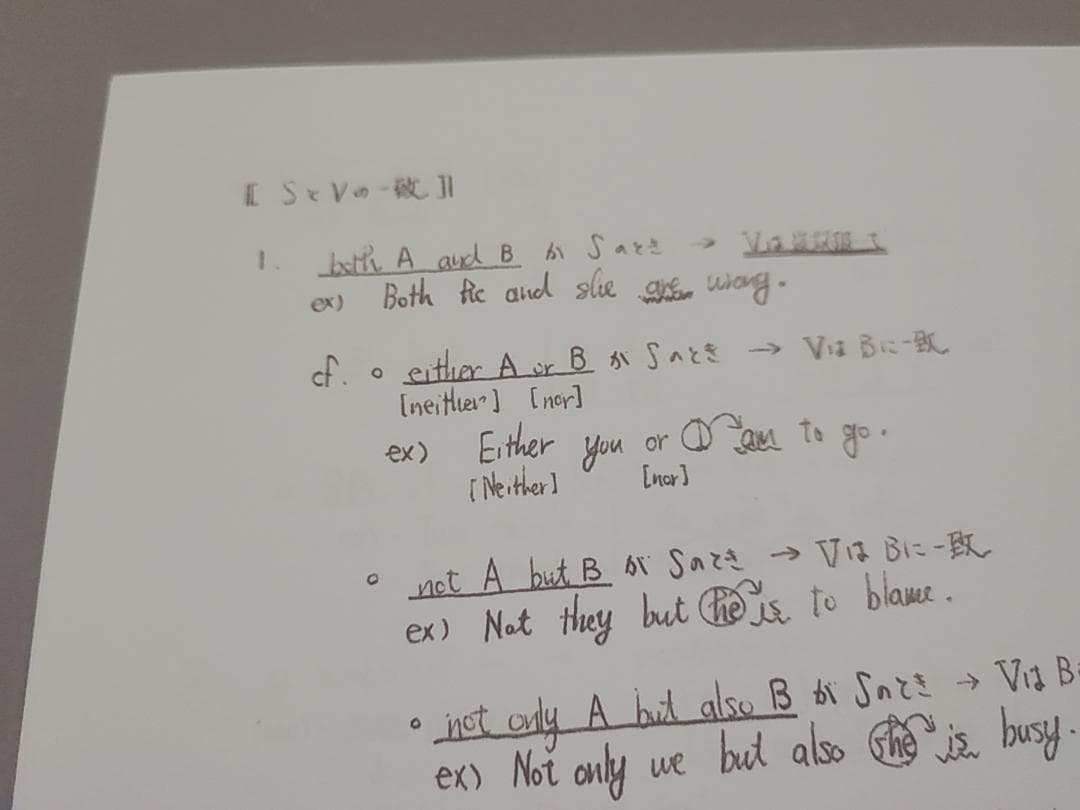 [[ SとVの一致 ]]
1. both A and B が Sのとき → Vは
ex) Both he and she are wrong.
cf. ○ either A or B が Sのとき → VはBに一致
[neither] [nor]
ex) Either you or I am to go.
[Neither] [nor]
○ not A but B が Sのとき → VはBに一致
ex) Not they but he is to blame.
○ not only A but also B が Sのとき → VはB
ex) Not only we but also she is busy.